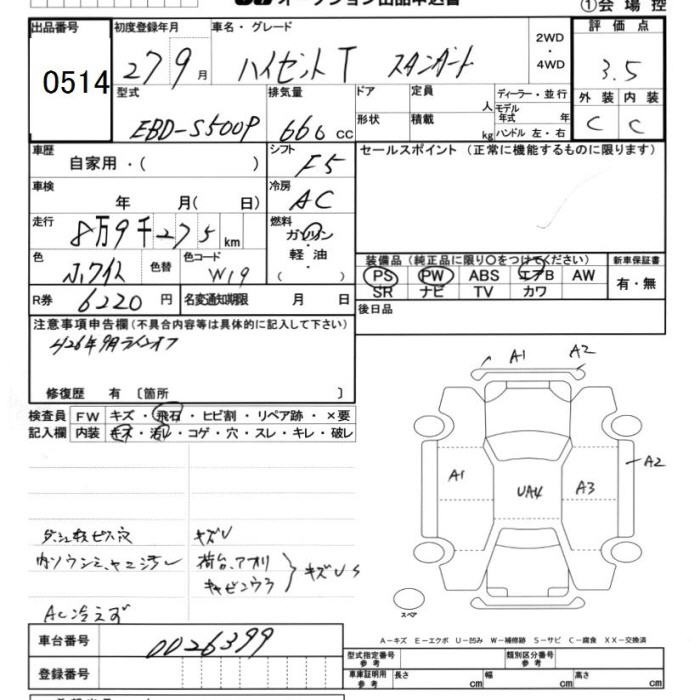 オークション出品申込書
①会場控
出品番号
0514
初度登録年月
27 9月
車名・グレード
ハイゼットT スタンダード
2WD
・
4WD
評価点
3.5
外装 内装
C C
型式
EBD-S500P
排気量
660 cc
ドア
形状
定員 人
積載 kg
ディーラー・並行
モデル年式 年
ハンドル 左・右
車歴
自家用・( )
シフト
F5
セールスポイント (正常に機能するものに限ります)
車検
年 月( 日)
冷房
AC
走行
8万9千275km
燃料
ガソリン
軽油
( )
色
ホワイト
色替
色コード
W19
装備品 (純正品に限り○をつけてください)
PS PW ABS エアB AW
SR ナビ TV カワ
新車保証書
有・無
R券
6220円
名変通知期限 月 日
後日品
注意事項申告欄 (不具合内容等は具体的に記入して下さい)
H26年9月ラインオフ
修復歴 有 〔箇所 〕
検査員
記入欄
FW キズ・飛石・ヒビ割・リペア跡・×要
内装 キズ・汚れ・コゲ・穴・スレ・キレ・破レ
A1 A2
A1 UA4 A3 A2
スペア
ダッシュ板ビス穴
内ソウシミ、ヤニ汚レ
AC冷えず
キズU
荷台、アオリ
キャビンウラ
キズUS
A-キズ E-エクボ U-凹み W-補修跡 S-サビ C-腐食 XX-交換済
車台番号
0026399
登録番号
型式指定番号
参考
類別区分番号
参考
車庫証明用
参考
長さ cm
幅 cm
高さ cm